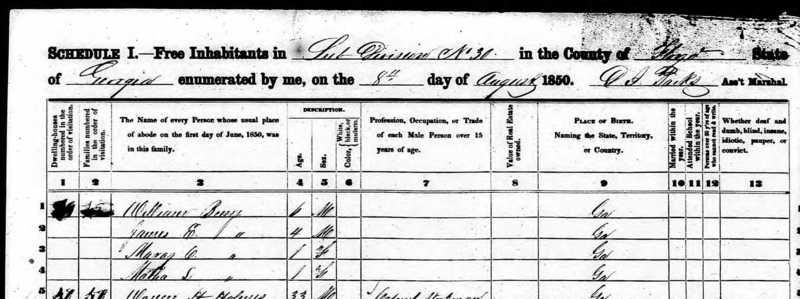 SCHEDULE I.—Free Inhabitants in Sub Division No 30 in the County of Floyd State
of Georgia enumerated by me, on the 8th day of August 1850. Ass't Marshal.
Dwelling-houses numbered in the order of visitation.
Families numbered in the order of visitation.
The Name of every Person whose usual place of abode on the first day of June, 1850, was in this family.
DESCRIPTION.
Age.
Sex.
Color, White, black, or mulatto.
Profession, Occupation, or Trade of each Male Person over 15 years of age.
Value of Real Estate owned.
PLACE OF BIRTH. Naming the State, Territory, or Country.
Married within the year.
Attended School within the year.
Persons over 20 y'rs of age who cannot read & write.
Whether deaf and dumb, blind, insane, idiotic, pauper, or convict.
1 2 3 4 5 6 7 8 9 10 11 12 13
1 William Berry 6 M Ga
2 James E. " 4 M Ga
3 C. " 1 F Ga
4 Martha S. " 1 F Ga
5 50 50 H Holmes 33 M